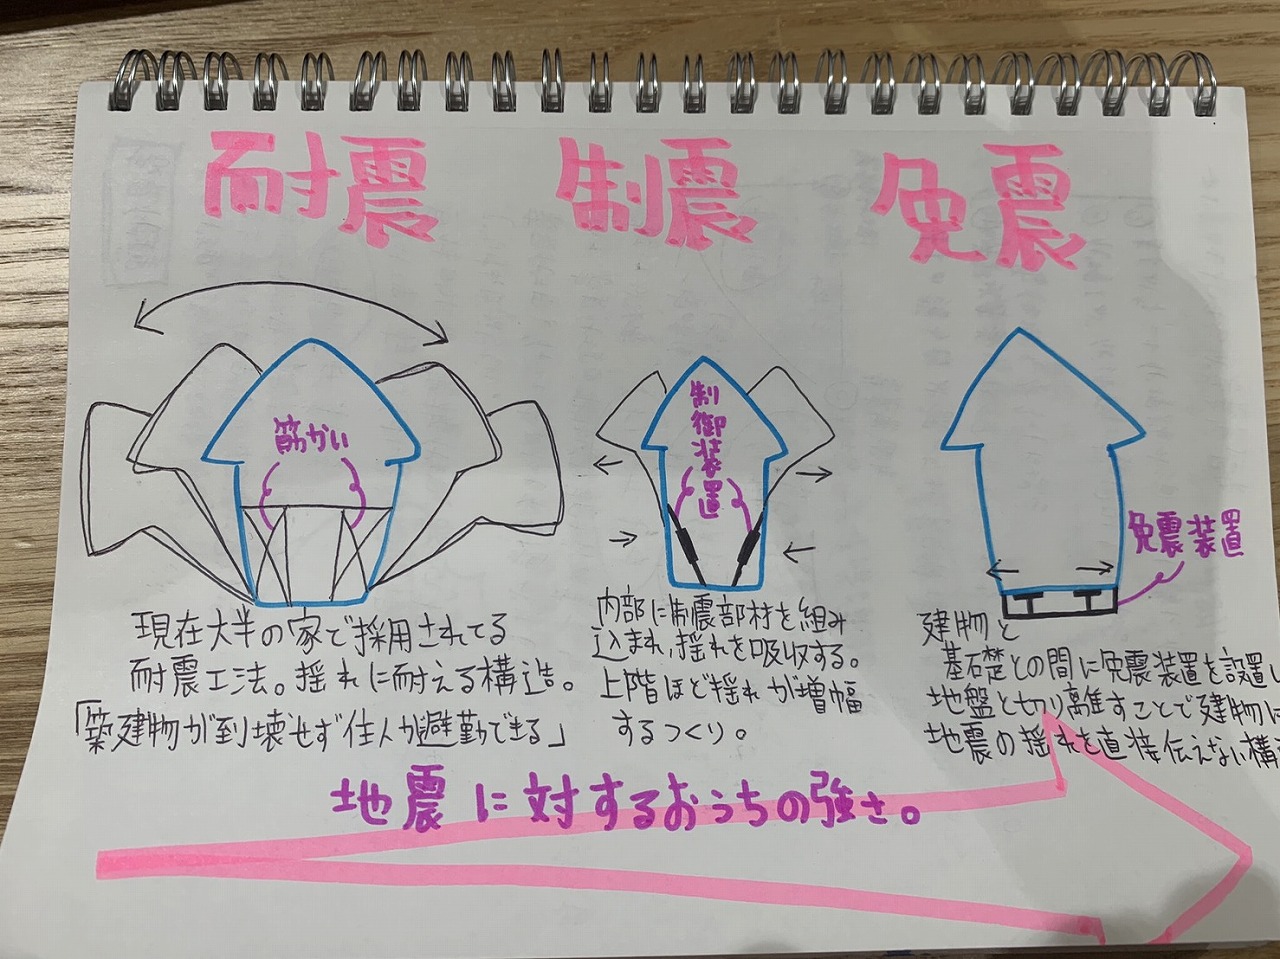 耐震
制震
免震
筋かい
制御装置
免震装置
現在大半の家で採用されてる
耐震工法。揺れに耐える構造。
「築建物が到壊せず住人が避勤できる」
内部に制震部材を組み
込まれ,揺れを吸収する。
上階ほど揺れが増幅
するつくり。
建物と
基礎との間に免震装置を設置し
地盤と切り離すことで建物に
地震の揺れを直接伝えない構
地震に対するおうちの強さ。